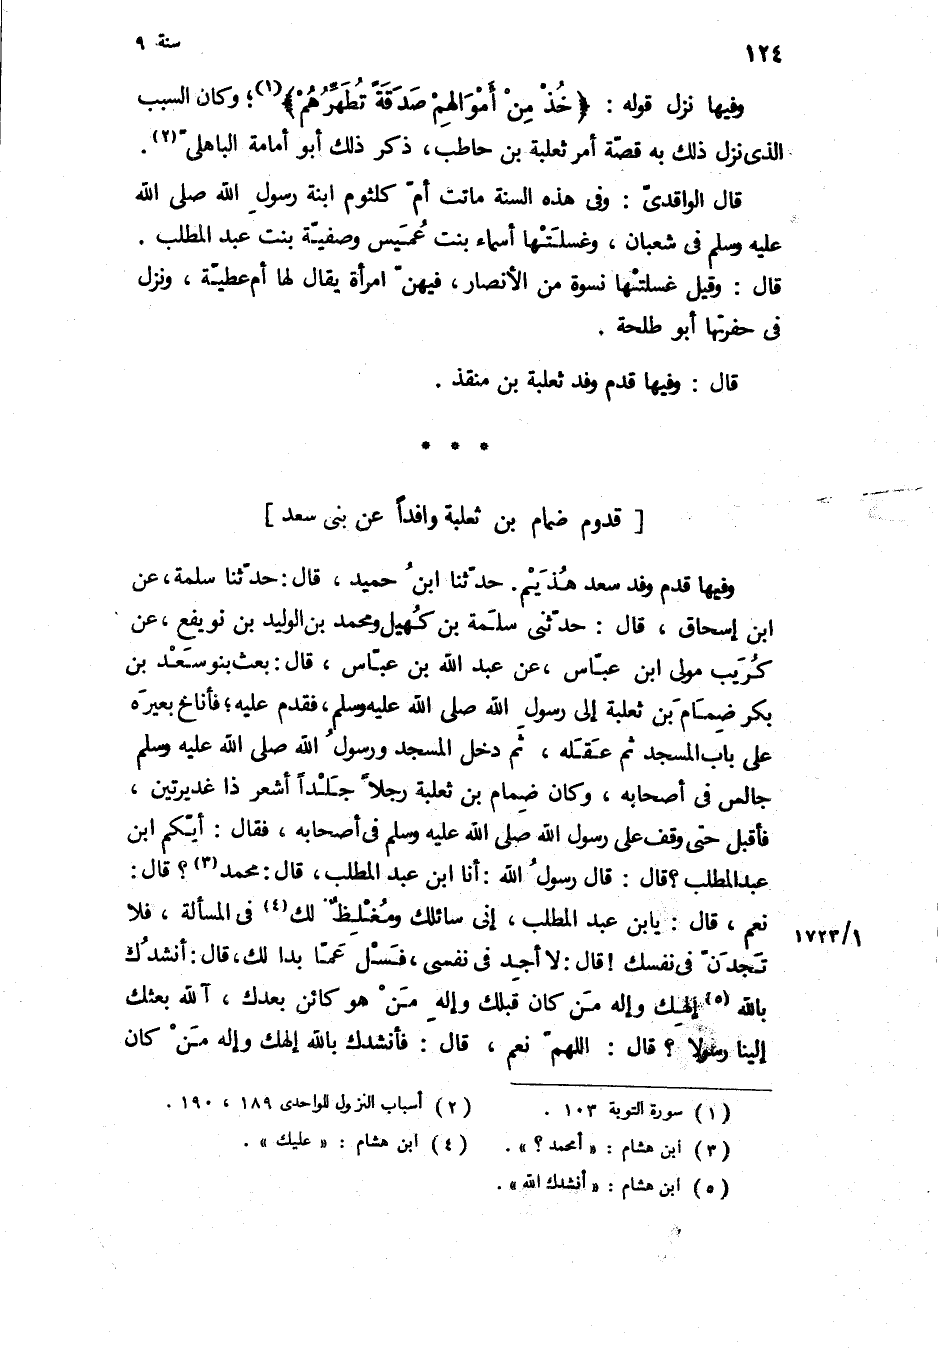 ١٢٤ سنة ٩
وفيها نزل قوله : ﴿ خُذْ مِنْ أَمْوَالِهِمْ صَدَقَةً تُطَهِّرُهُمْ﴾(١)؛ وكان السبب
الذى نزل ذلك به قصّة أمر ثعلبة بن حاطب، ذكر ذلك أبو أمامة الباهلىّ(٢).
قال الواقدىّ : وفى هذه السنة ماتت أمّ كلثوم ابنة رسول الله صلى الله
عليه وسلم فى شعبان ، وغسلَتْها أسماء بنت عُمَيس وصفيّة بنت عبد المطلب .
قال : وقيل غسلتْها نسوة من الأنصار، فيهنّ امرأة يقال لها أم عطيّة ، ونزل
فى حفرتها أبو طلحة .
قال : وفيها قدم وفد ثعلبة بن منقذ .
* * *
[ قدوم ضمام بن ثعلبة وافداً عن بنى سعد ]
وفيها قدم وفد سعد هُذَيْم. حدّثنا ابنُ حميد ، قال: حدّثنا سلمة، عن
ابن إسحاق ، قال : حدّثنى سلَمة بن كُهيل ومحمد بن الوليد بن نويفع ، عن
كُرَيب مولى ابن عبّاس ، عن عبد الله بن عبّاس ، قال: بعث بنو سَعْد بن
بكر ضِمَام َبن ثعلبة إلى رسولِ الله صلى الله عليه وسلم، فقدم عليه؛ فأناخ بعيرَه
على باب المسجد ثم عَقَله ، ثم دخل المسجد ورسولُ الله صلى الله عليه وسلم
جالس فى أصحابه ، وكان ضِمام بن ثعلبة رجلاً جَلْداً أشعر ذا غديرتين ،
فأقبل حتى وقف على رسول الله صلى الله عليه وسلم فى أصحابه ، فقال : أيّكم ابن
عبد المطلب ؟ قال : قال رسولُ الله : أنا ابن عبد المطلب، قال: محمد(٣)؟ قال:
نعم ، قال : يابن عبد المطلب ، إنى سائلك ومُغْلِظٌ لك(٤) فى المسألة ، فلا
١٧٢٣/١
تجدَنّ فى نفسك ! قال: لا أجِد فى نفسى، فسَلْ عَمّا بدا لك، قال: أنشدُك
بالله (٥) إلهِك وإله مَن كان قبلك وإلهِ مَنْ هو كائن بعدك ، آلله بعثك
إلينا رسولا ؟ قال : اللهمّ نعم ، قال : فأنشدك بالله إلهك وإله مَنْ كان
(١) سورة التوبة ١٠٣ . (٢) أسباب النزول للواحدى ١٨٩ ، ١٩٠ .
(٣) ابن هشام : « أمحمد ؟ ». (٤) ابن هشام : « عليك » .
(٥) ابن هشام : « أنشدك الله » .